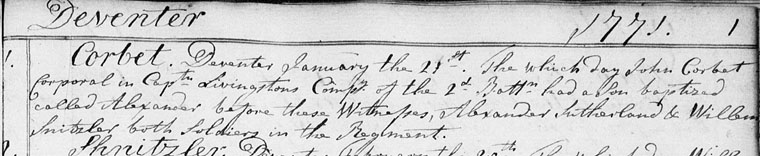 Deventer 1771. 1
1. Corbet. Deventer January the 21st. The which day John Corbet
Corporal in Captn Livingstons Compy of the 2d Battn had a Son baptized
called Alexander before these Witnesses, Alexander Sutherland & Willem
Snitzler both Soldiers in the Regiment.
2. Shnitzler.